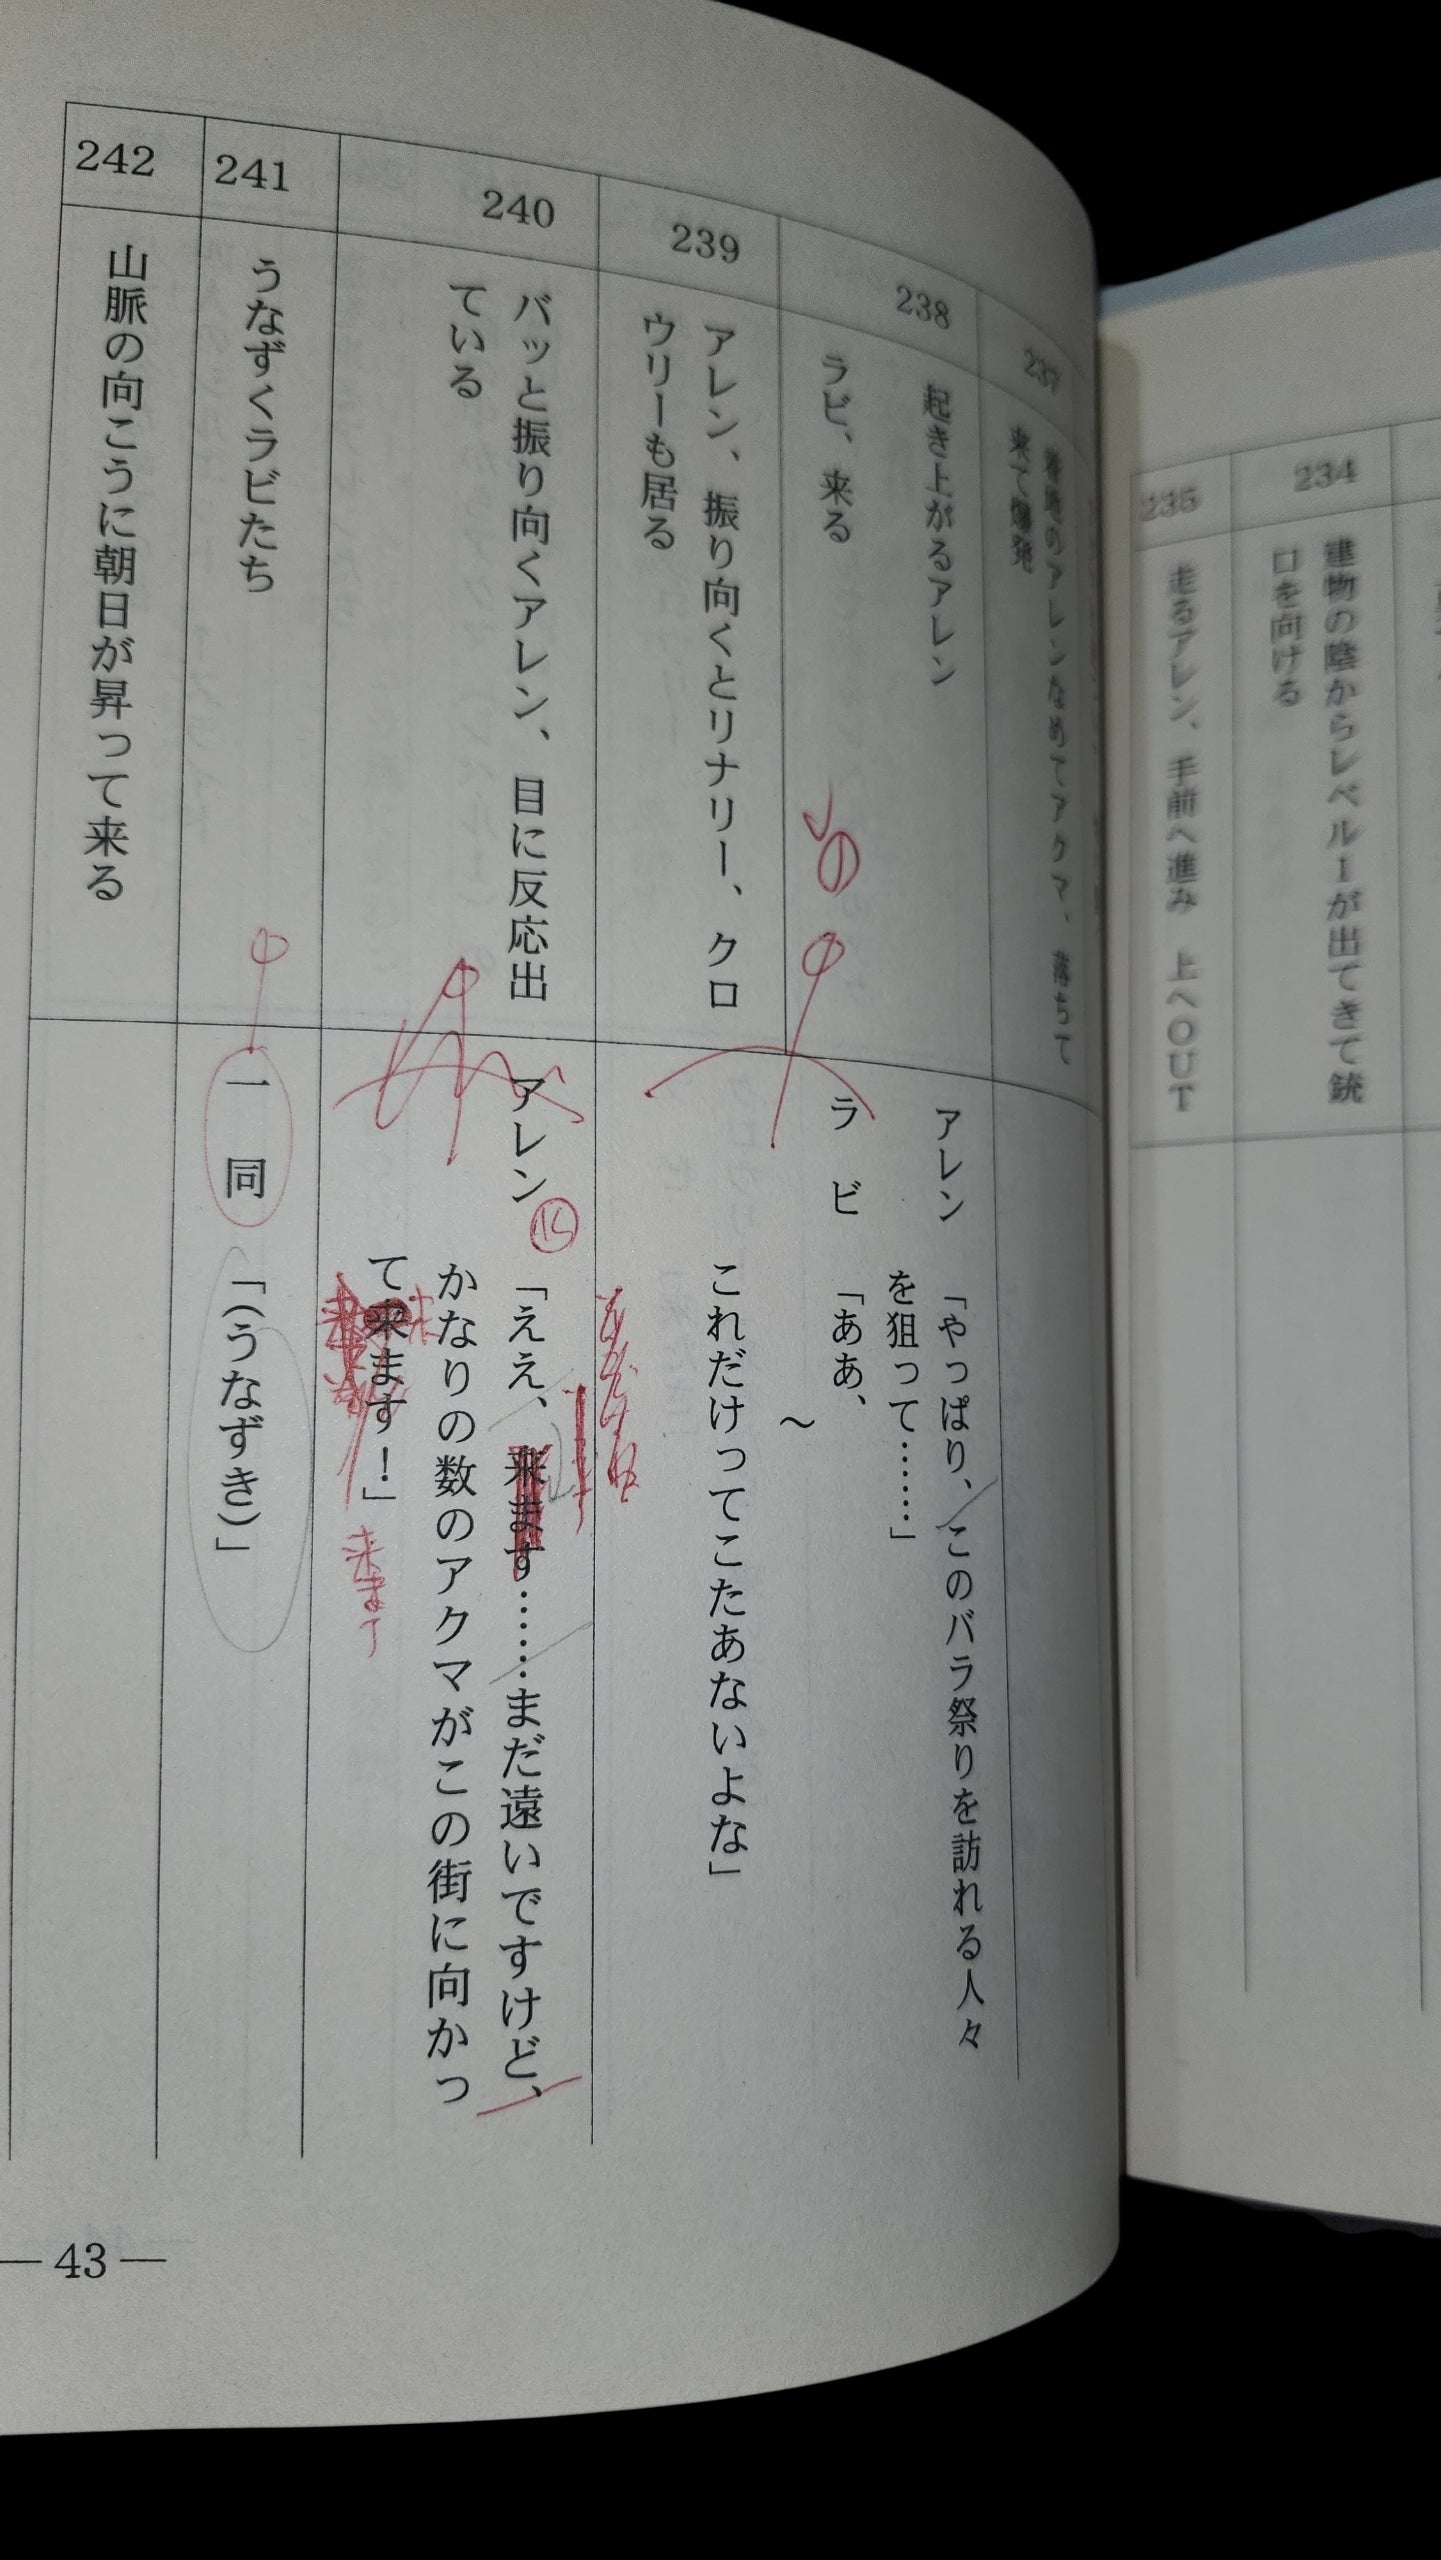 234
建物の陰からレベルⅠが出てきて銃
口を向ける
235
走るアレン、手前へ進み　上へOUT
237
アレンなめてアクマ、落ちて
来て爆発
238
起き上がるアレン
アレン「やっぱり、このバラ祭りを訪れる人々
を狙って……」
ラビ、来る
ラビ「ああ、
～
これだけってこたあないよな」
239
アレン、振り向くとリナリー、クロ
ウリーも居る
240
バッと振り向くアレン、目に反応出
ている
アレン「ええ、来ます……まだ遠いですけど、
かなりの数のアクマがこの街に向かっ
て来ます！」
来ます
241
うなずくラビたち
一同「（うなずき）」
242
山脈の向こうに朝日が昇って来る
—43—